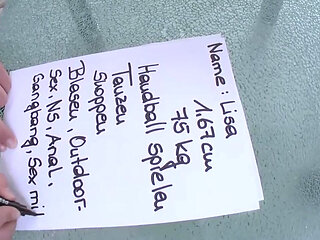 Name: Lisa
1.67cm
75kg
Handball spielen
Tanzen
Shoppen
Blasen, Outdoor-
Sex, NS, Anal,
Gangbang, Sex mit